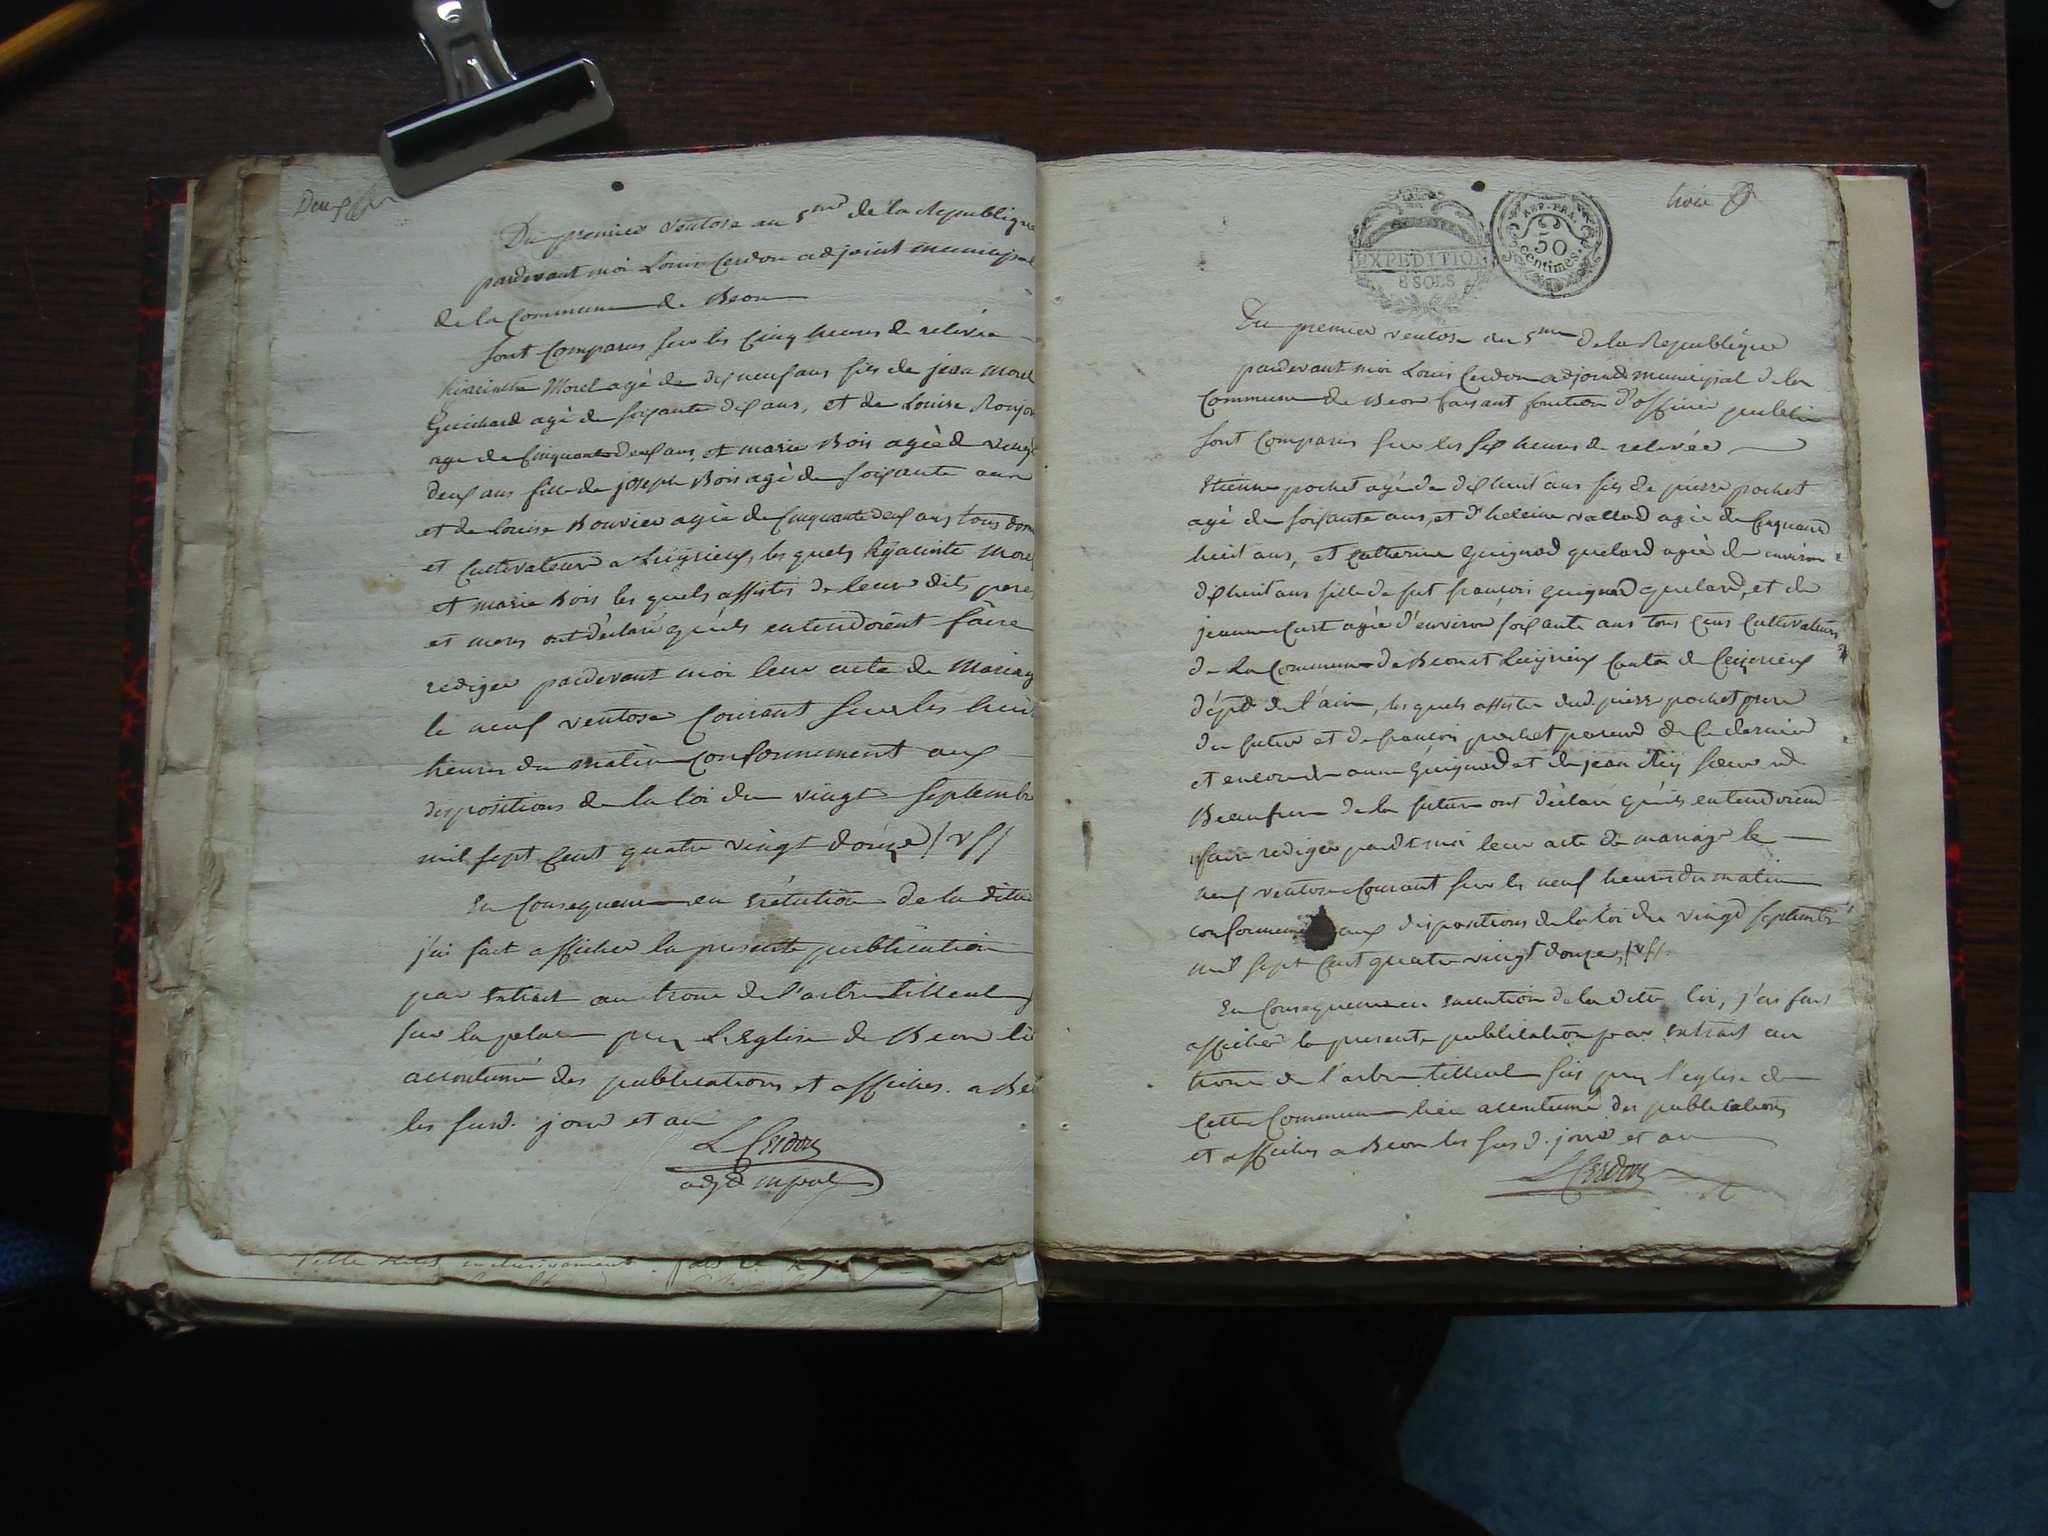 Deux
Du premier ventose an 5me de la Republique
pardevant moi Louis Cerdon adjoint municipal
de la Commune de Beon
sont Comparus sur les Cinq heures de relevée
hiacinthe Morel agé de dix neuf ans fils de jean Morel
Guichard agé de soixante dix ans, et de Louise
age de Cinquante deux ans, et marie Bois agée de vingt
deux ans fille de joseph Bois agé de soixante ans
et de Louise Bouvier agée de Cinquante deux ans tous dom
et Cultivateurs a Luijrieux, les quels hÿacinte More
et marie Bois les quels assistés de leur dits peres
et mers ont déclaré qu'ils entendoient faire
rediger pardevant moi leur acte de Mariag
le neuf ventose Courant sur les huit
heures du matin conformement aux
dispositions de la loi du vingt Septembre
mil sept Cent quatre vingt douze /
En Consequence en exécution de la ditte
j'ai fait afficher la presente publication
par extrait au tronc de l'arbre tilleul
sur la place prez L'Eglise de Beon li
accoutumé des publications et affiches. a Be
les susd. jour et an
L Cerdon
adjt mpal
EXPEDITION
8 SOLS
REP. FRA.
50
Centimes.
trois
Du premier ventose an 5me de la Republique
pardevant moi Louis Cerdon adjoint municipal de la
Commune de Beon faisant fonction d'officier public
sont Comparus sur les six heures de relevée
Etienne pochet agé de dix huit ans fils de pierre pochet
agé de soixante ans, et d'heleine vallod agée de Cinquante
huit ans, et Catherine Guignod quelard agée de environ
dix huit ans fille de fut françois Guignod quelard, et de
jeanne Curt agée d'environ soixante ans tous Ceus Cultivateurs
de La Commune de Beon et Luijrieux Canton de Ceijzerieux
dépt de l'ain, les quels assistés dud. pierre pochet pere
du futur et de françois pochet parend de Ce dernier
et encore de anne Guignod et de jean soeur et
Beaufrere de la future ont déclaré qu'ils entendoient
faire rediger pardt moi leur acte de mariage le
neuf ventose Courant sur les neuf heures du matin
conformement aux dispositions de la loi du vingt septembre
mil sept Cent quatre vingt douze, /
En Consequence en execution de la ditte loi, j'ai fait
afficher la presente publication par extrait au
tronc de l'arbre tilleul sis prez l'eglise de
Cette Commune lieu accoutumé des publications
et affiches a Beon les susd. jour et an
L Cerdon